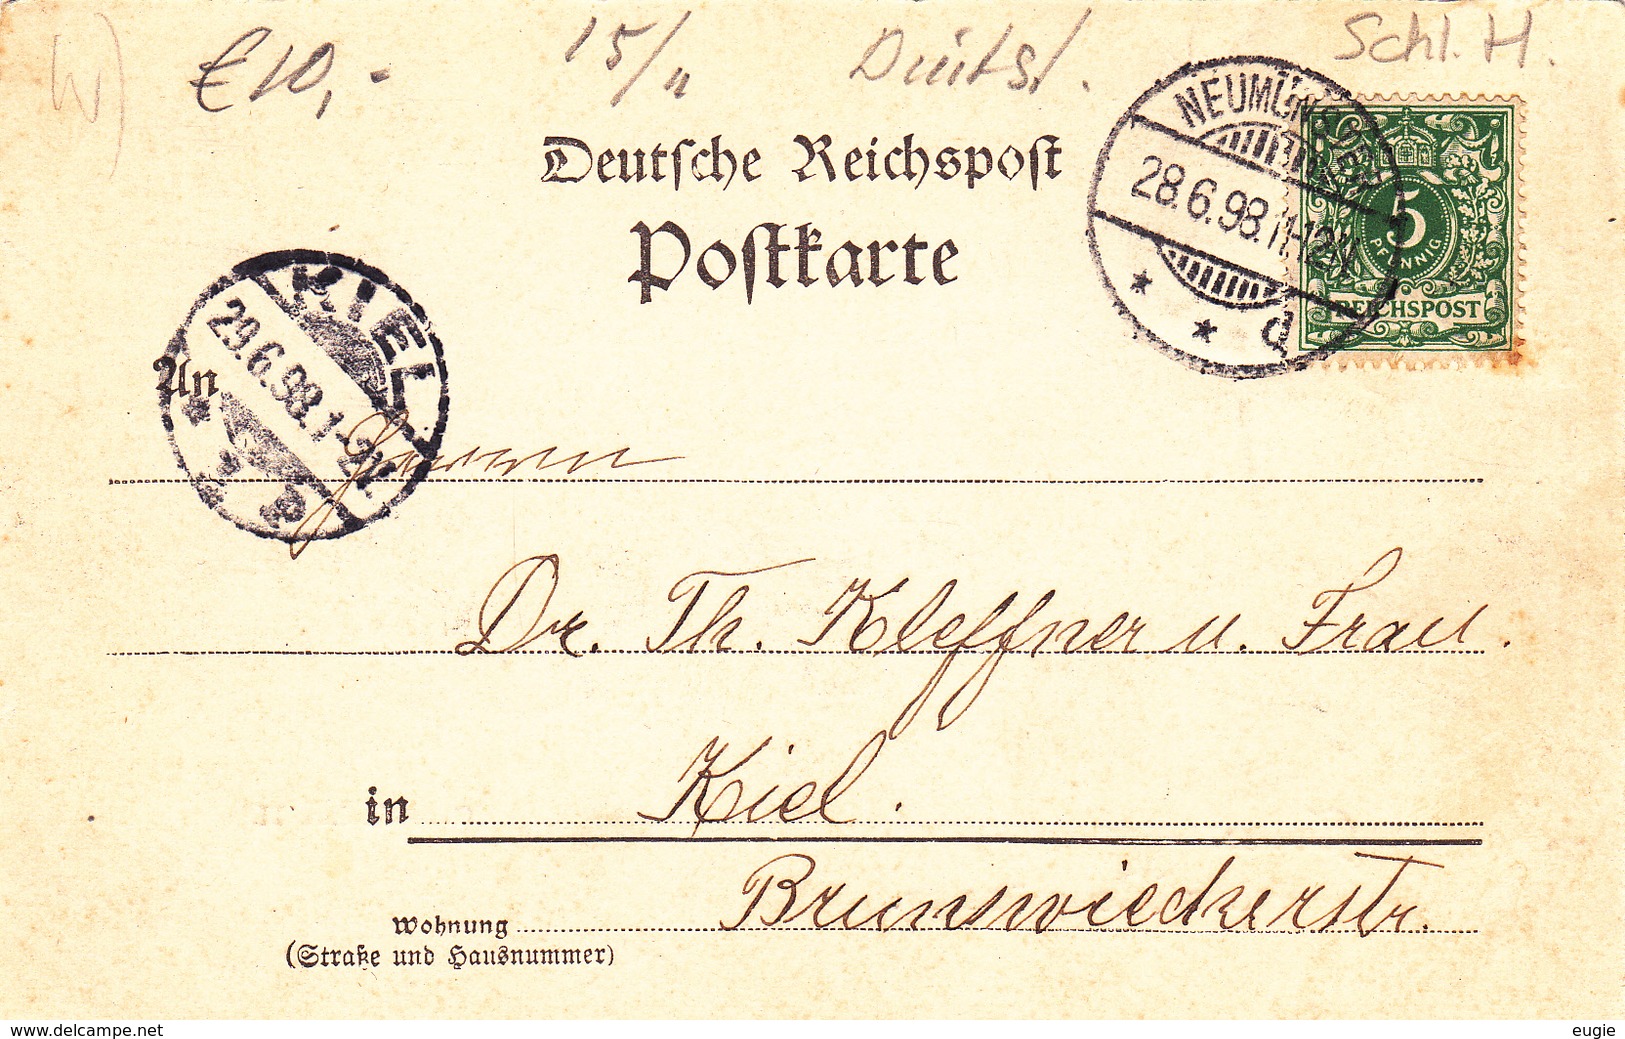 €10,-
15/11
Duitsl.
Schl. H.
Deutsche Reichspost
Postkarte
NEUMÜNSTER
28.6.98.11-12N
d
5
PFENNIG
REICHSPOST
KIEL
29.6.98.1-2N
An
Herrn
Dr. Th. Kleffner u. Frau.
in Kiel.
Wohnung Brunswieckerstr.
(Straße und Hausnummer)
www.delcampe.net
eugie